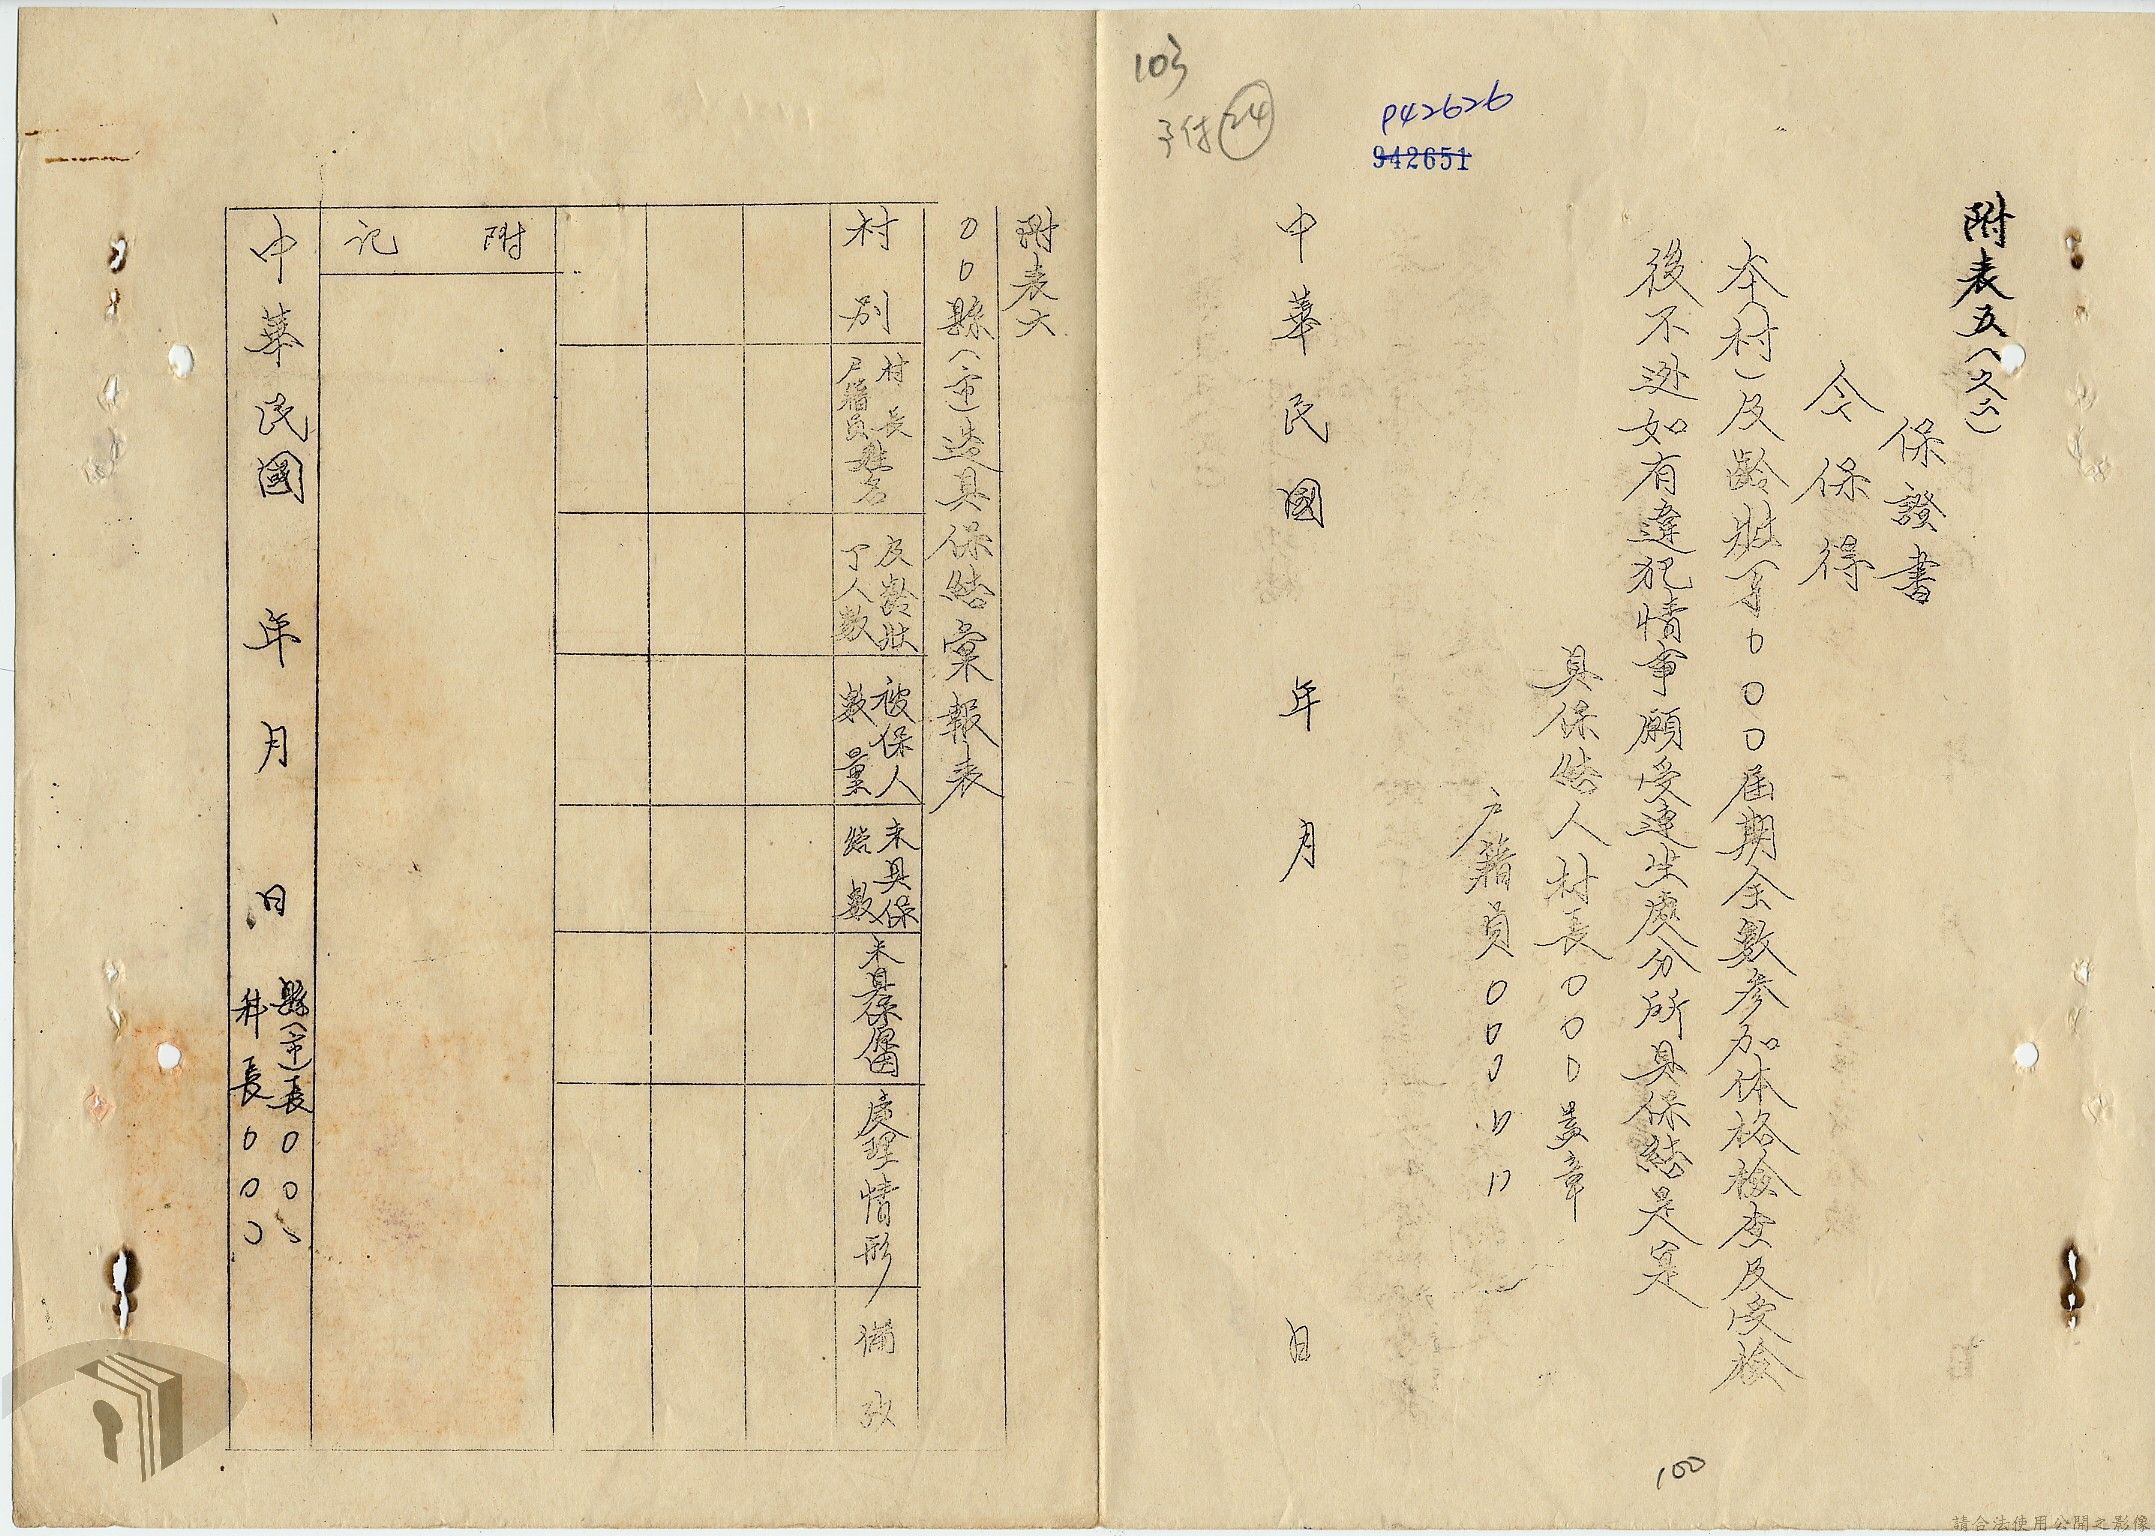 103
予付 24
P42626
942651
附表五(之二)
保證書
今保得
本(村)及齡壯丁〇〇〇屆期全數參加体格檢查及受檢
後不逃如有違犯情事願受連坐處分所具保結是实
具保結人村長〇〇〇蓋章
户籍員〇〇〇〃〃
中華民國 年 月 日
100
附表六
〇〇縣(市)造具保結彙報表
村別
村長户籍員姓名
及齡壯丁人數
被保人數量
未具保結數
未具保原因
處理情形
備攷
附記
中華民國 年 月 日
縣(市)長〇〇〇
科長〇〇〇
請合法使用公開之影像